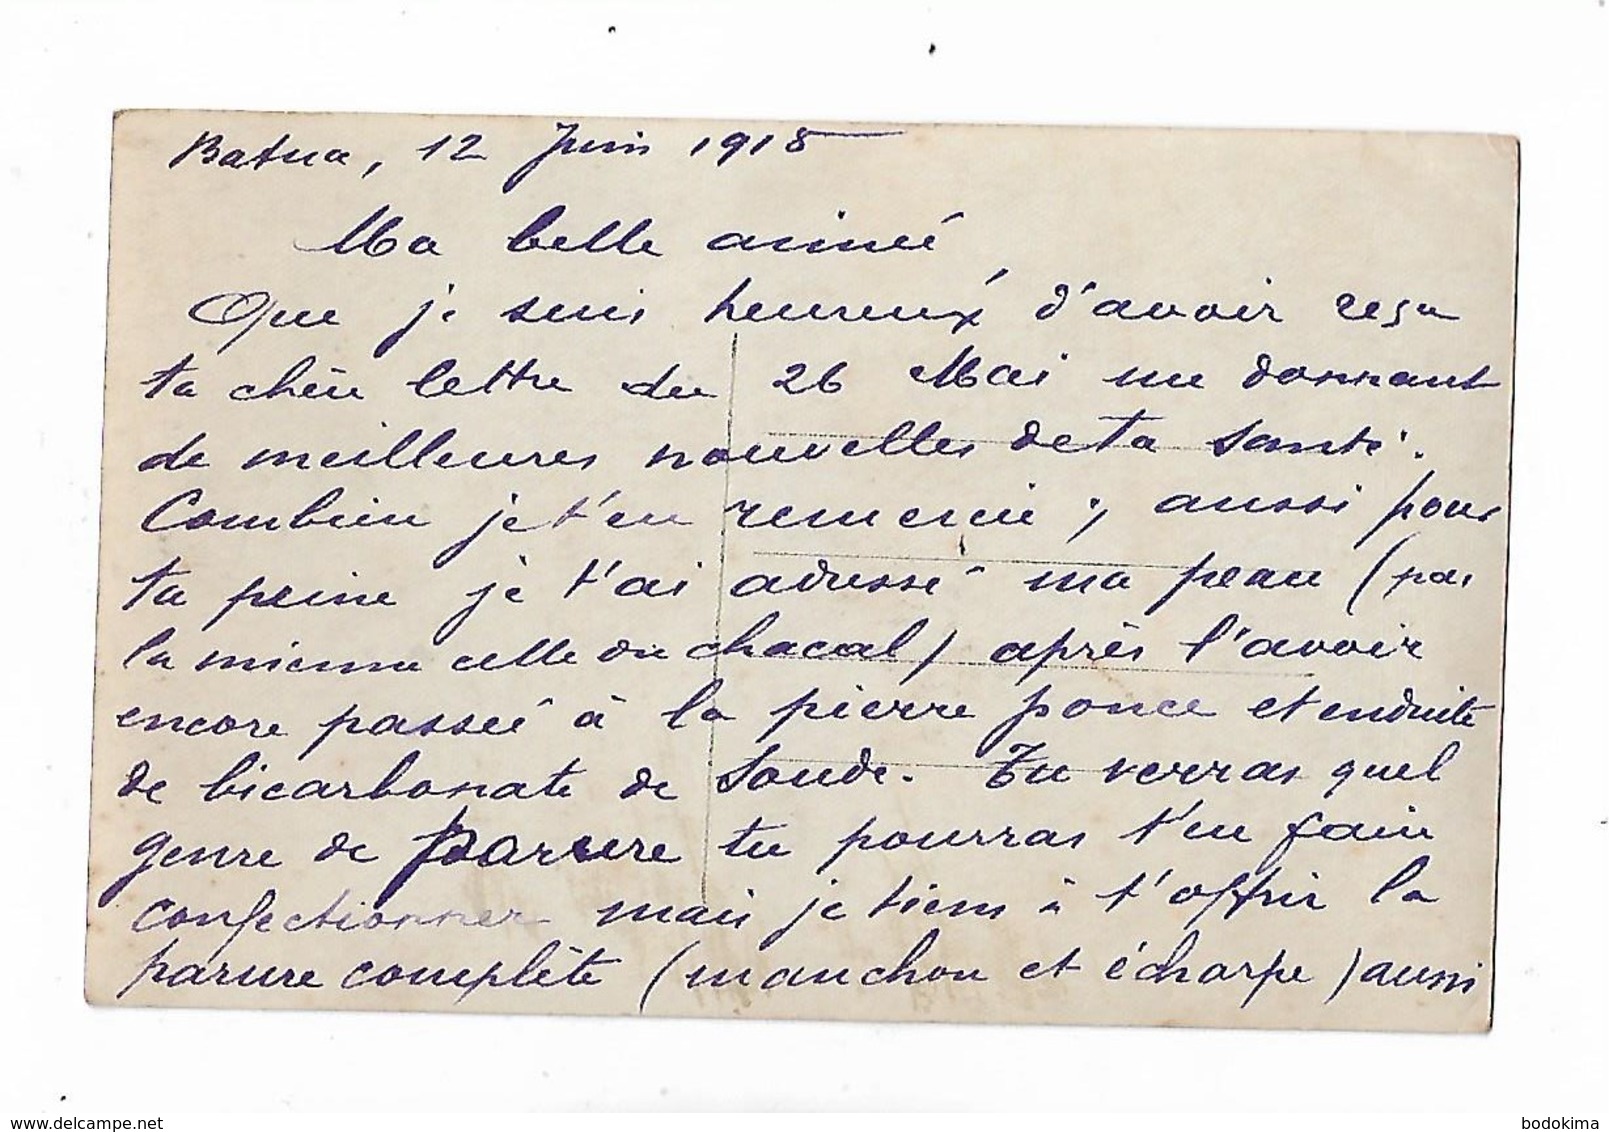 Batna, 12 Juin 1915
Ma belle aimée,
Que je suis heureux d'avoir reçu
ta chère lettre du 26 Mai me donnant
de meilleures nouvelles de ta santé.
Combien je t'en remercie; aussi pour
ta peine je t'ai adressé ma peau (pas
la mienne celle du chacal) après l'avoir
encore passée à la pierre ponce et enduite
de bicarbonate de soude. Tu verras quel
genre de parure tu pourras t'en faire
confectionner mais je tiens à t'offrir la
parure complète (manchon et écharpe) aussi
delcampe.net
bodokima